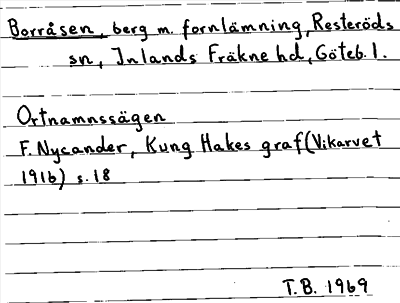 Borråsen, berg m. fornlämning, Resteröds
sn, Inlands Fräkne hd, Göteb. l.
Ortnamnssägen
F. Nycander, Kung Hakes graf (Vikarvet
1916) s. 18
T.B. 1969